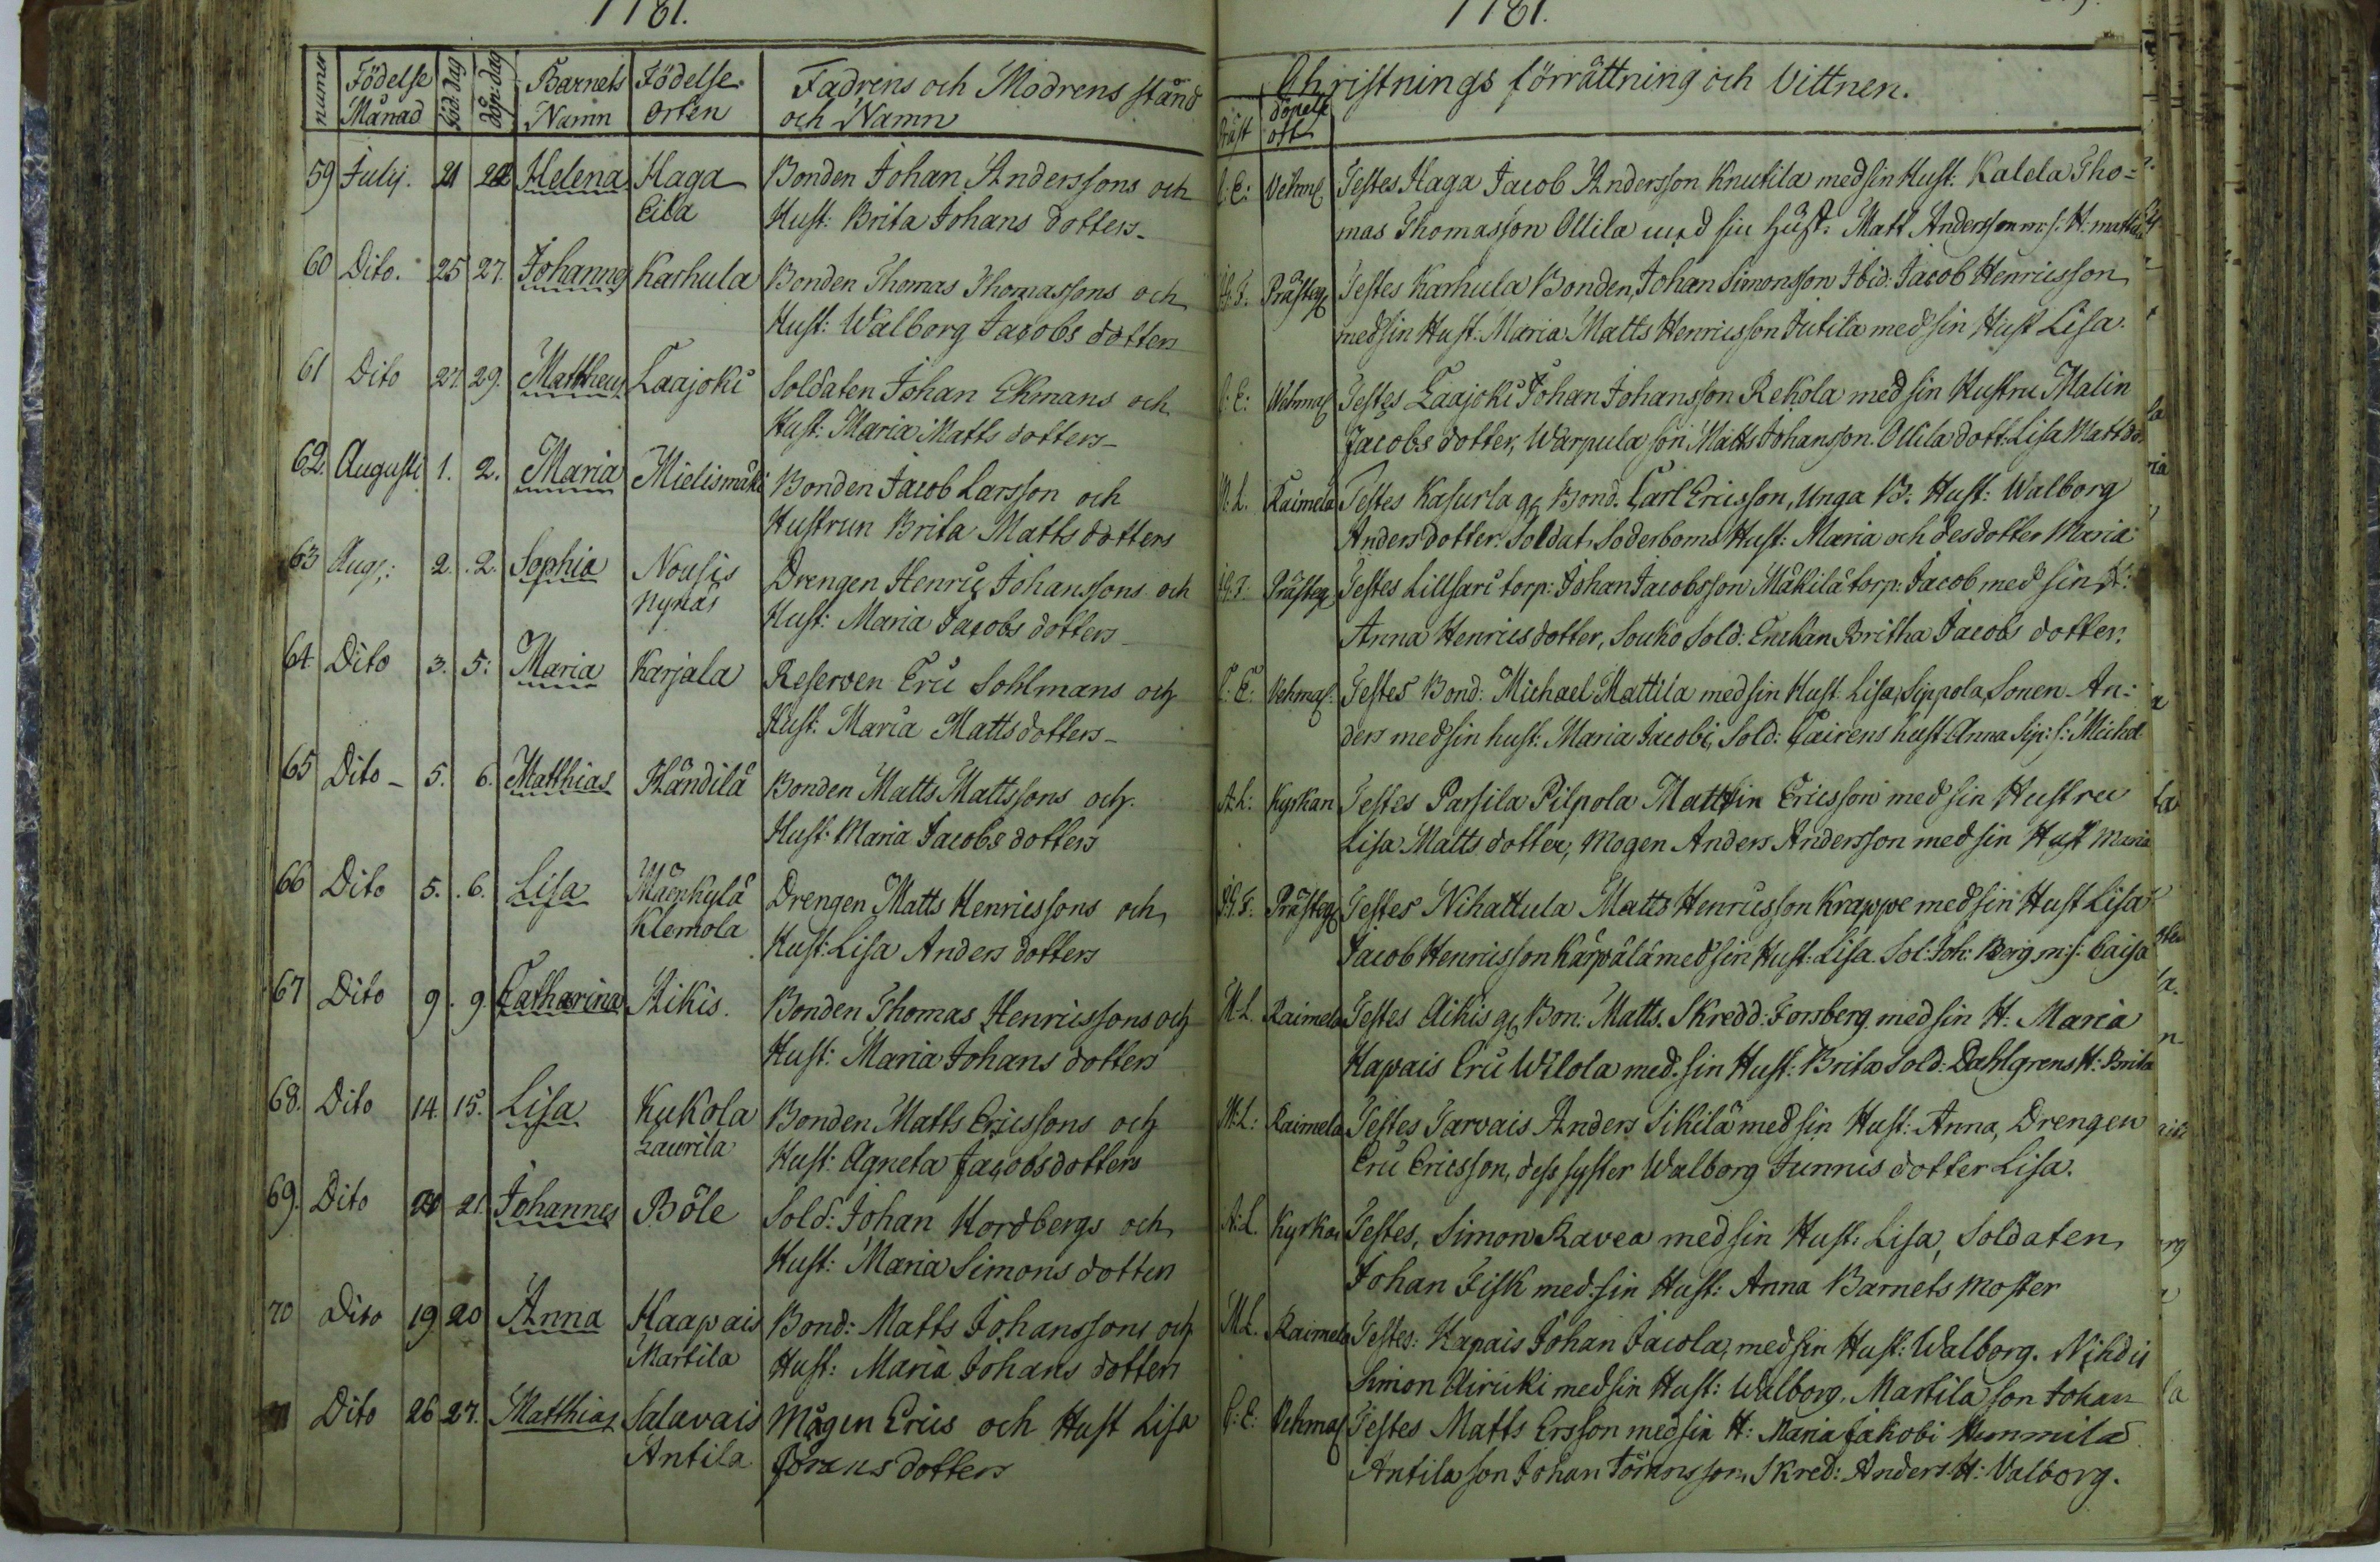 1781.
numer Födelse Månad föd: dag döp: dag Barnets Namn Födelse orten Fadrens och Modrens stånd och Namn
59 July. 21 22 Helena Haga Eila Bonden Johan Anderssons och
Hust: Brita Johans dotters
60 Dito. 25 27. Johannes Karhula Bonden Thomas Thomassons och
Hust: Walborg Jacobs dotters
61 Dito 27. 29. Mattheus Laajoki Soldaten Johan Ekmans och
Hust: Maria Matts dotters
62. Augusti 1. 2. Maria Mielismäki Bonden Jacob Larsson och
Hustrun Brita Matts dotters
63 Aug: 2. 2. Sophia Nousis Nynäs Drengen Henric Johanssons och
Hust: Maria Jacobs dotters
64 Dito 3. 5: Maria Karjala Reserven Eric Sohlmans och
Hust: Maria Mattsdotters
65 Dito 5. 6. Matthias Händilä Bonden Matts Mattssons och
Hust: Maria Jacobs dotters
66 Dito 5. 6. Lisa Mäenkylä Klemola Drengen Matts Henricssons och
Hust: Lisa Anders dotters
67 Dito 9. 9. Catharina Aikis. Bonden Thomas Henricssons och
Hust: Maria Johans dotters
68. Dito 14 15. Lisa Kukola Laurila Bonden Matts Ericssons och
Hust: Agneta Jacobsdotters
69. Dito 20 21. Johannes Böle Sold: Johan Nordbergs och
Hust: Maria Simons dotters
70 Dito 19 20 Anna Haapais Martila Bond: Matts Johanssons och
Hust: Maria Johans dotters
71 Dito 26 27. Matthias Salavais Antila Mågen Erics och Hust Lisa
Görans dotters
1781.
Christnings förrättning och Vittnen.
Präst döpelse ort
C: E: Vehm Testes Haga Jacob Andersson Knutila med sin Hust: Kalela Tho=
mas Thomasson Ollila med sin Hust: Matt Andersson m: s: H:
G. F. Präste Testes Karhula Bonden, Johan Simonsson Ibid: Jacob Henricsson
med sin Hust: Maria Matts Henricsson Jutila med sin Hust Lisa.
C: E: Wehma Testes Laajoki Johan Johansson Rekola med sin Hustru Malin
Jacobs dotter, Warpula son Matts Johansson. Ollila dott: Lisa Matt do.
M: L. Kaimela Testes Kasurla g Bond. Carl Ericsson, Unga B: Hust: Walborg
Anders dotter. Soldat Söderboms Hust: Maria och des dotter Maria
G. F: Präste Testes Lillsari torp: Johan Jacobsson Mäkilä torp: Jacob med sin H:
Anna Henrics dotter, Souko Sold: Enckan Britha Jacobs dotter.
C: E: Vehma Testes Bond: Michael Mattila med sin Hust: Lisa, Sippola, Sonen An=
ders med sin hust: Maria Jacobi, Sold: Cairens hust Anna Sip: s: Michel
A: L: Kyrkan Testes Parsila Pilpola Matts Ericsson med sin Hustru
Lisa Matts dotter, Mogen Anders Andersson med sin Hust Maria
G. F: Präste Testes Nihattula Matts Henricsson Krappe med sin Hust Lisa
Jacob Henricsson Kärpälä med sin Hust: Lisa. Sol: Joh: Berg m: s: Caisa
M: L. Kaimela Testes Aikis g Bon: Matts. Skredd: Forsberg med sin H: Maria
Hapais Eric Wilola med sin Hust: Brita Sold: Dahlgrens H: Brita
M: L: Kaimela Testes Tarvais Anders Sikilä med sin Hust: Anna, Drengen
Eric Ericsson, dess syster Walborg Junnis dotter Lisa.
A: L. Kyrkan Testes, Simon Ravea med sin Hust: Lisa, Soldaten
Johan Fisk med sin Hust: Anna Barnets moster
M: L. Kaimela Testes: Hapais Johan Jacola, med sin Hust: Walborg.
Simon Airicki med sin Hust: Walborg, Martila son Johan
C: E: Vehma Testes Matts Ersson med sin H: Maria Jakobi Hemmilä
Antila son Johan Göransson, Skred: Anders H: Valborg.